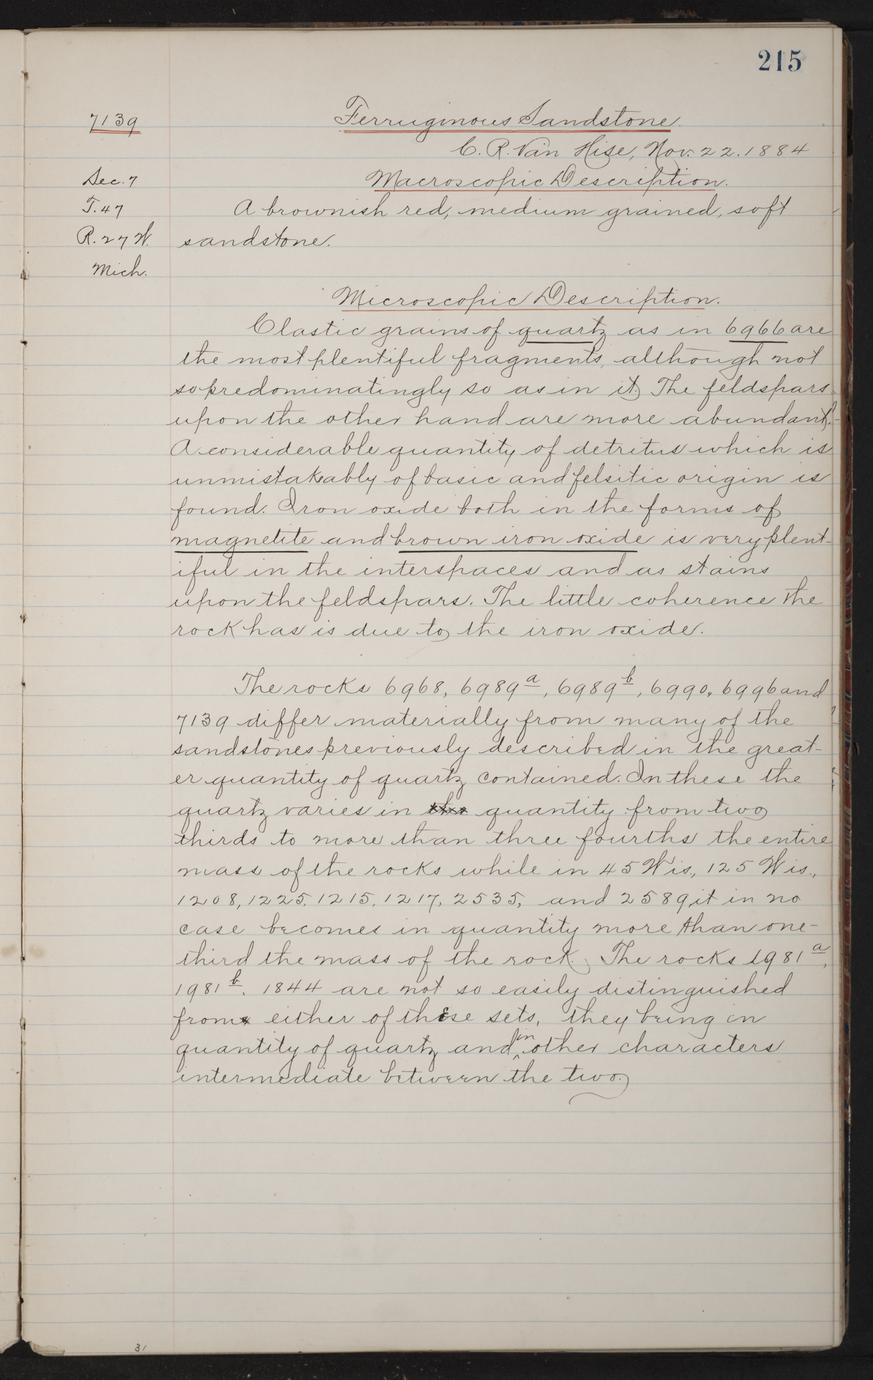 215
7139
Ferruginous Sandstone.
C. R. Van Hise, Nov. 22. 1884
Sec. 7
Macroscopic Description.
T. 47
A brownish red, medium grained, soft
R. 27 W.
sandstone.
Mich.
Microscopic Description.
Clastic grains of quartz as in 6966 are
the most plentiful fragments, although not
so predominatingly so as in it. The feldspars
upon the other hand are more abundant.
A considerable quantity of detritus which is
unmistakably of basic and felsitic origin is
found. Iron oxide both in the forms of
magnetite and brown iron oxide is very plent-
iful in the interspaces and as stains
upon the feldspars. The little coherence the
rock has is due to the iron oxide.
The rocks 6968, 6989a, 6989b, 6990, 6996 and
7139 differ materially from many of the
sandstones previously described in the great-
er quantity of quartz contained. In these the
quartz varies in quantity from two
thirds to more than three fourths the entire
mass of the rocks while in 45 Wis, 125 Wis.,
1208, 1225, 1215, 1217, 2535, and 2589 it in no
case becomes in quantity more than one-
third the mass of the rock. The rocks 1981a,
1981b, 1844 are not so easily distinguished
from either of these sets, they being in
quantity of quartz and in other characters
intermediate between the two.
31